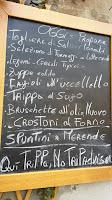 OGGI
Tagliere di Sal
Selezione di Formaggi
Legumi
Zuppa
Fagioli all'uccelletto
Trippa al Sugo
Bruschette all'olio Nuovo
Crostoni al Forno
Spuntini & Merende
Qui Trippa, No Trip Advisor